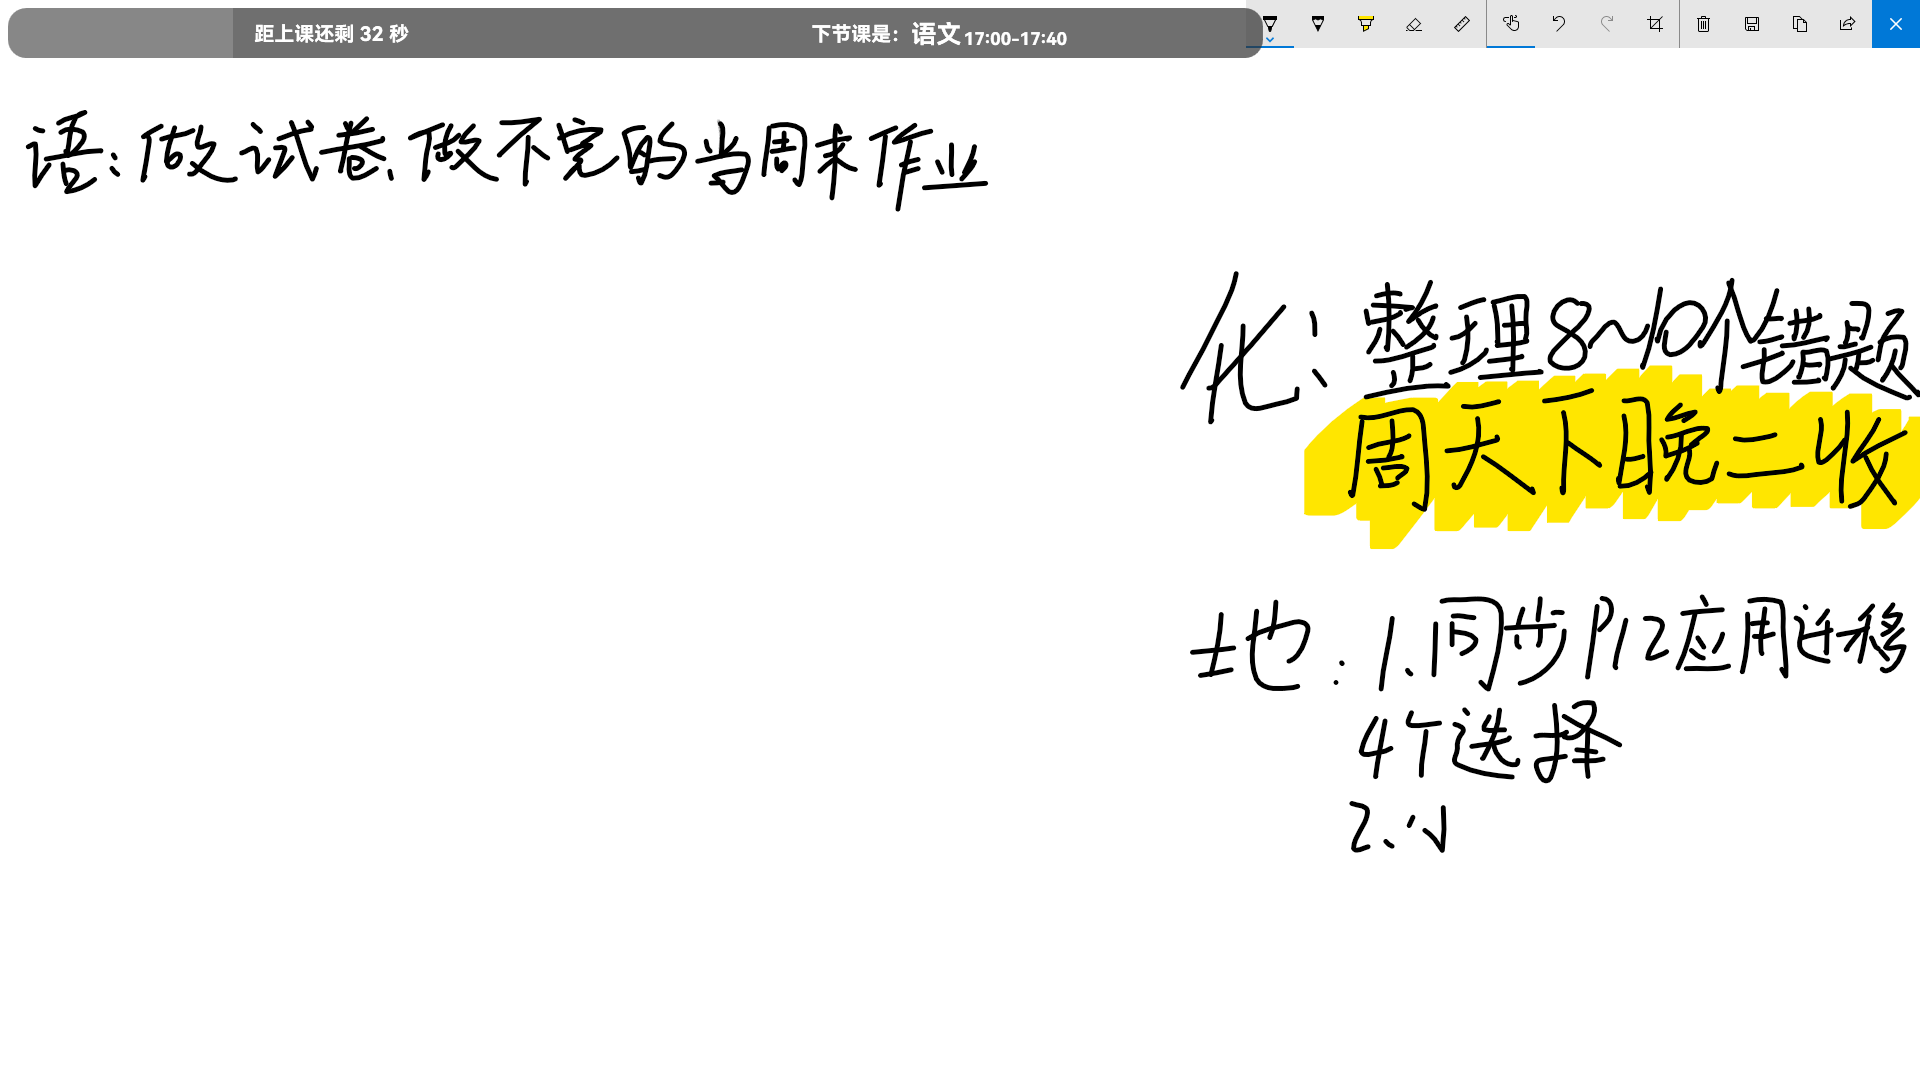 距上课还剩 32 秒
下节课是：语文 17:00-17:40
语：做试卷、做不完的当周末作业
化：整理8~10个错题
周天下晚二收
地：1.同步P12应用迁移
4个选择
2.小